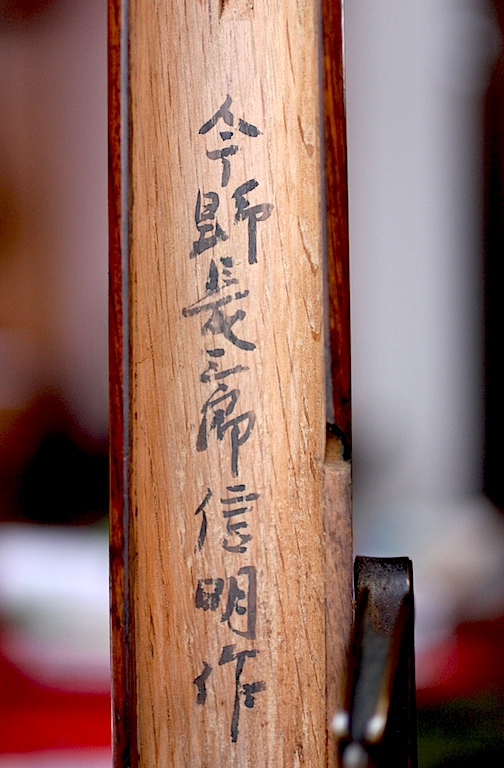 今野長三郎信明作